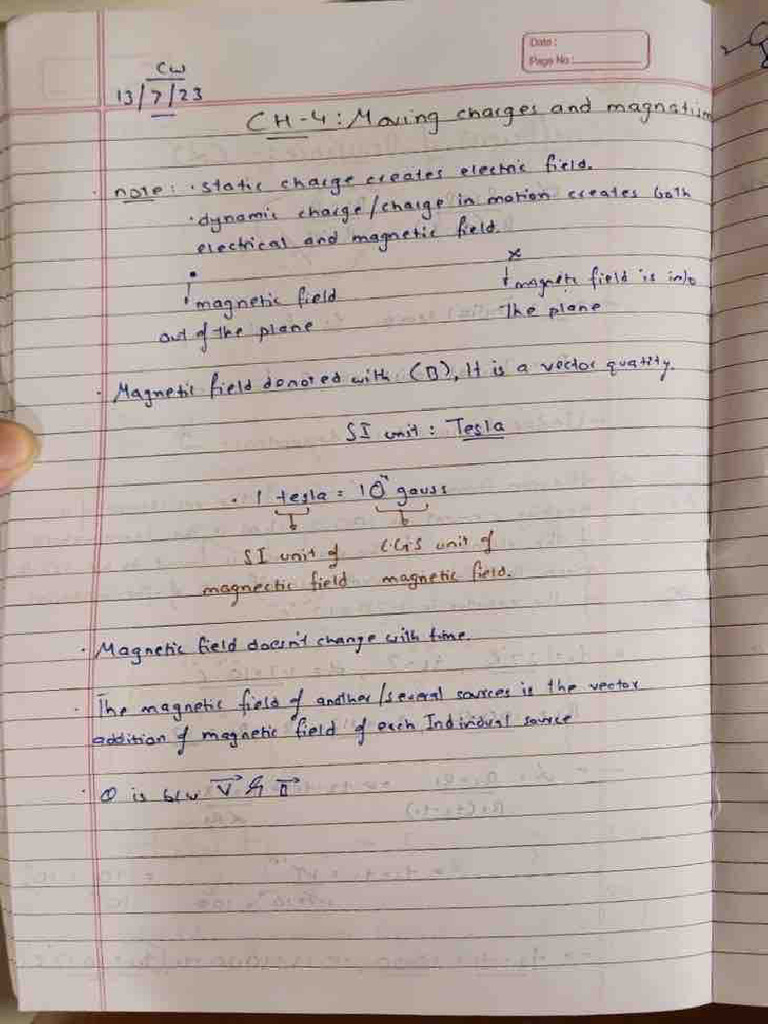 Date :
Page No :
CW
13/7/23
CH-4: Moving charges and magnatism
note: · static charge creates electric field.
· dynamic charge/charge in motion creates both
electrical and magnetic field.
x
magnetic field
out of the plane
magnetic field is into
the plane
· Magnetic field denoted with (B), It is a vector quatity.
SI unit : Tesla
· 1 tesla = 10⁴ gauss
SI unit of
magnectic field
CGS unit of
magnetic field.
· Magnetic field doesn't change with time.
· The magnetic field of another/several sources is the vector
addition of magnetic field of each Individual source
· θ is b/w V⃗ & B⃗